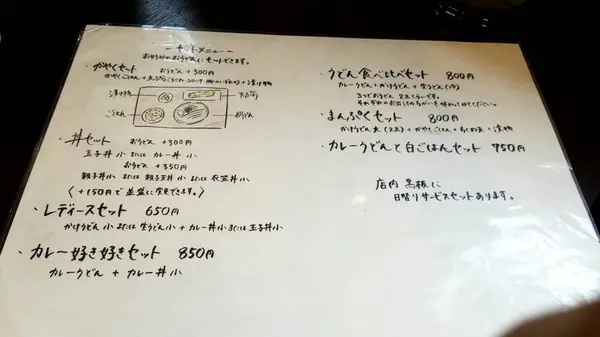 －セットメニュー－
お好みのおうどんにセットできます。
・かやくセット おうどん +300円
かやくごはん + 天ぷら + 漬け物
漬け物
天ぷら
ごはん
おうどん
・丼セット おうどん +300円
玉子丼 小 または カレー丼 小
おうどん +350円
親子丼 小 または 親子天丼 小 または 衣笠丼 小
〈+150円で並盛に変更できます。〉
・レディースセット 650円
かけうどん 小 または 生うどん 小 + カレー丼 小 または 玉子丼 小
・カレー好き好きセット 850円
カレーうどん + カレー丼 小
・うどん食べ比べセット 800円
カレーうどん + かけうどん + 生うどん(冷)
3つでおうどん 2玉くらいです。
それぞれのお出汁のちがいを味わって下さい。
・まんぷくセット 800円
かけうどん 大(2玉) + かやくごはん + ちくわ天 + 漬物
・カレーうどんと白ごはんセット 750円
店内 黒板に
日替りサービスセットあります。